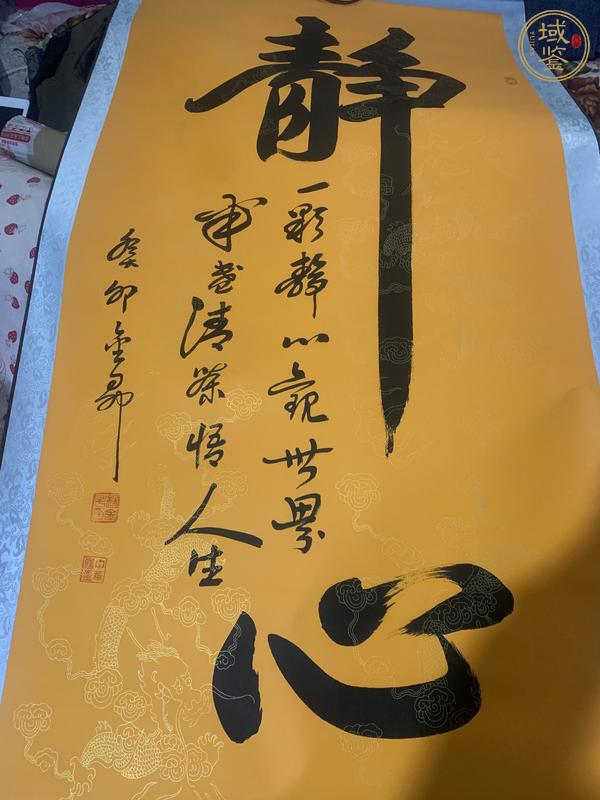 静心
一颗静心观世界
半盏清茶悟人生
癸卯金
域鉴